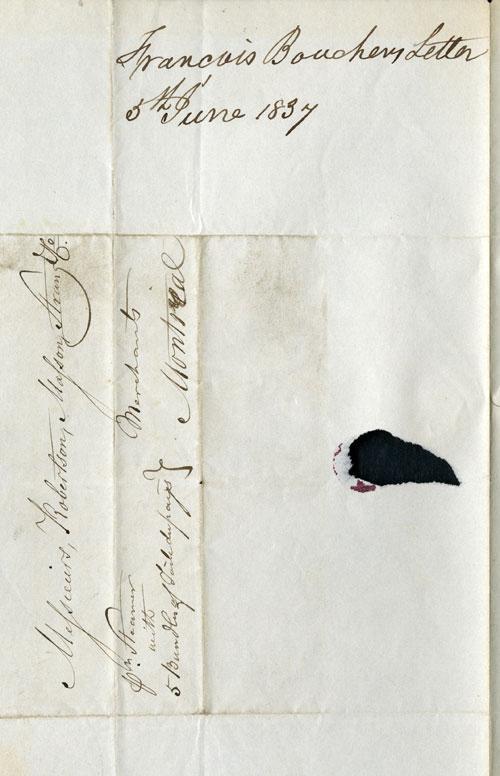 Francois Bouchers Letter
5th June 1837
Messieurs, Robertson, Masson, Strang &Co.
Merchants
Montreal
pr. Steamer
with
5 Bundles